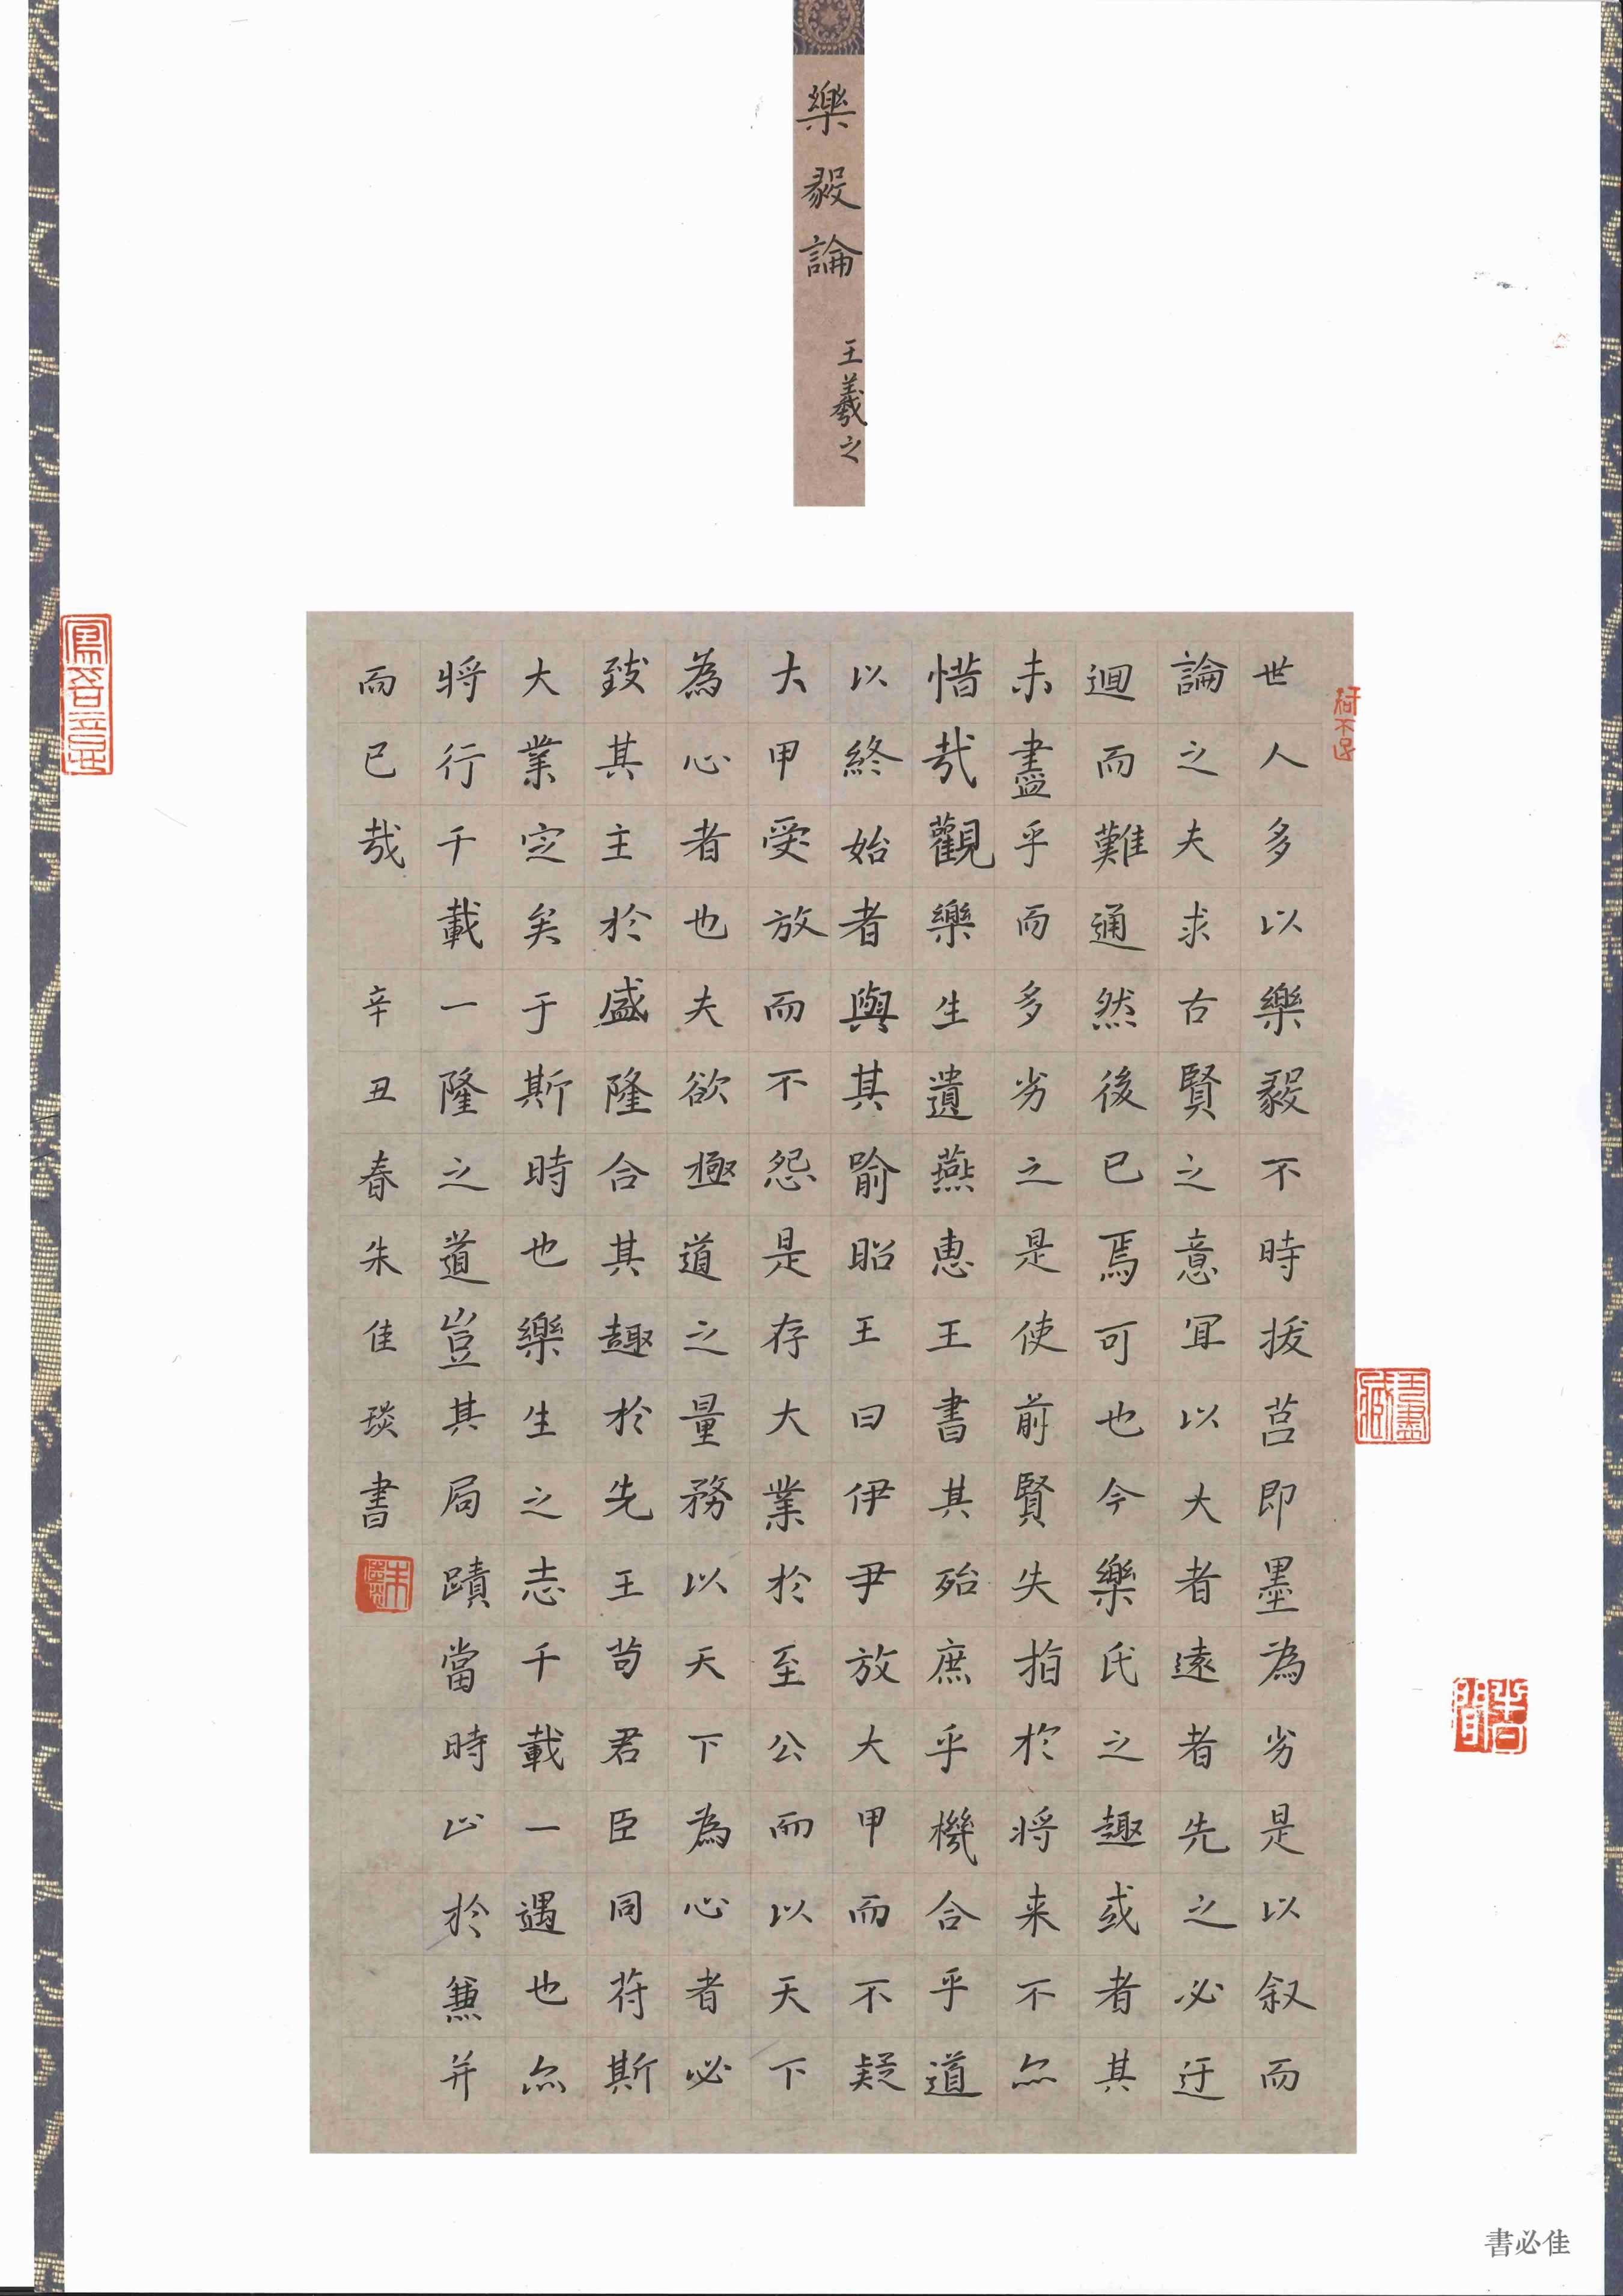 樂毅論
王羲之
世人多以樂毅不時拔莒即墨為劣是以叙而
論之夫求古賢之意冝以大者遠者先之必迂
迴而難通然後已焉可也今樂氏之趣或者其
未盡乎而多劣之是使前賢失指於将来不尒
惜㢤觀樂生遺燕惠王書其殆庶乎機合乎道
以終始者與其喻昭王曰伊尹放大甲而不疑
大甲受放而不怨是存大業於至公而以天下
為心者也夫欲極道之量務以天下為心者必
致其主於盛隆合其趣於先王苟君臣同苻斯
大業定矣于斯時也樂生之志千載一遇也尒
將行千載一隆之道豈其局蹟當時止於兼并
而已㢤 辛丑春朱佳琰書
書必佳